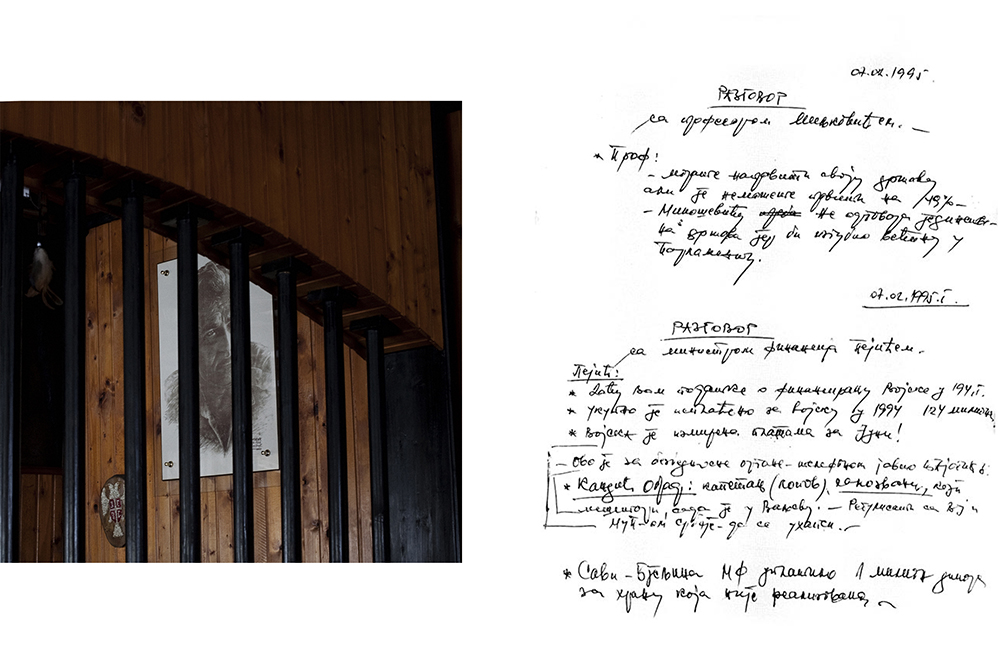 07.02.1995.
РАЗГОВОР
са професором Миљковићем.
* Проф:
- можете направити своју државу
али је не можете правити на 49%-
- Милошевићу не одговара јединстве-
на држава јер би изгубио већину у
Парламенту.
07.02.1995.г.
РАЗГОВОР
са министром финансија Пејићем.
Пејић:
* вам податке о финансирању Војске у 194.г.
* укупно је исплаћено за војску у 1994 124 милиона
* Војска је измирена платама за Јуни!
- Ово је за јавно
* Кандић Обрад: капетан (попов), који
сада је у Ваљеву. - Регулисати са
МУП-ом Србије да се ухапси.
* Сави - Бјељина МФ уплатило 1 милион динара
за храну која није реализована